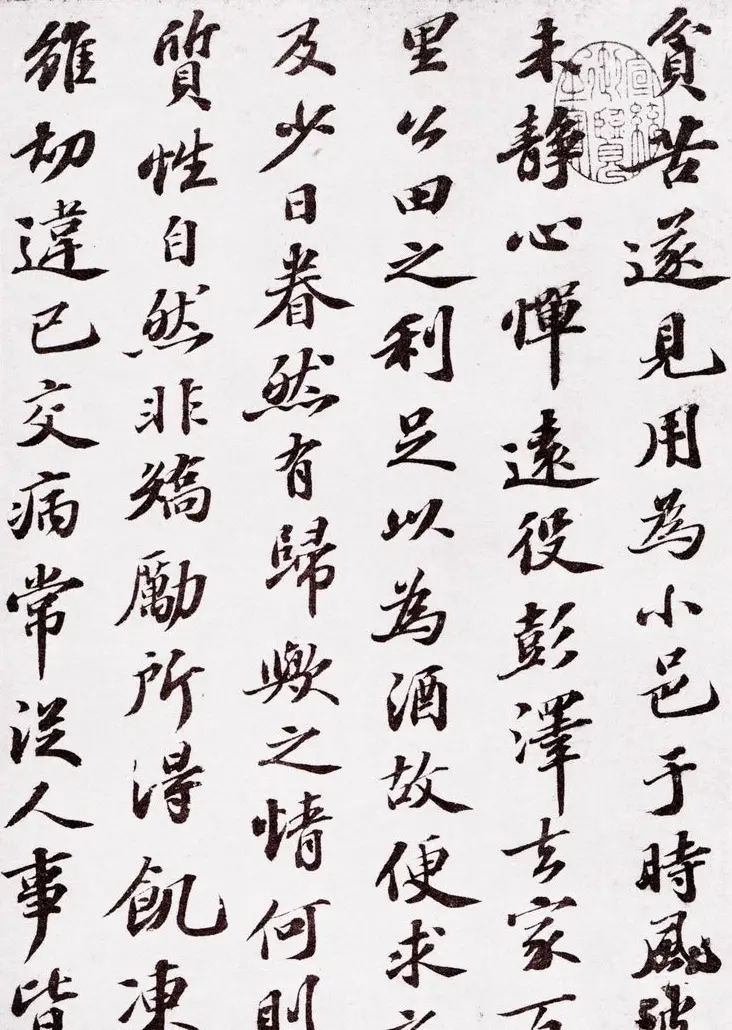 貧苦遂見用為小邑于時風
未靜心憚遠役彭澤去家
里公田之利足以為酒故便求
及少日眷然有歸歟之情何則
質性自然非矯勵所得飢凍
雖切違己交病常從人事皆
宣統御覽之寶